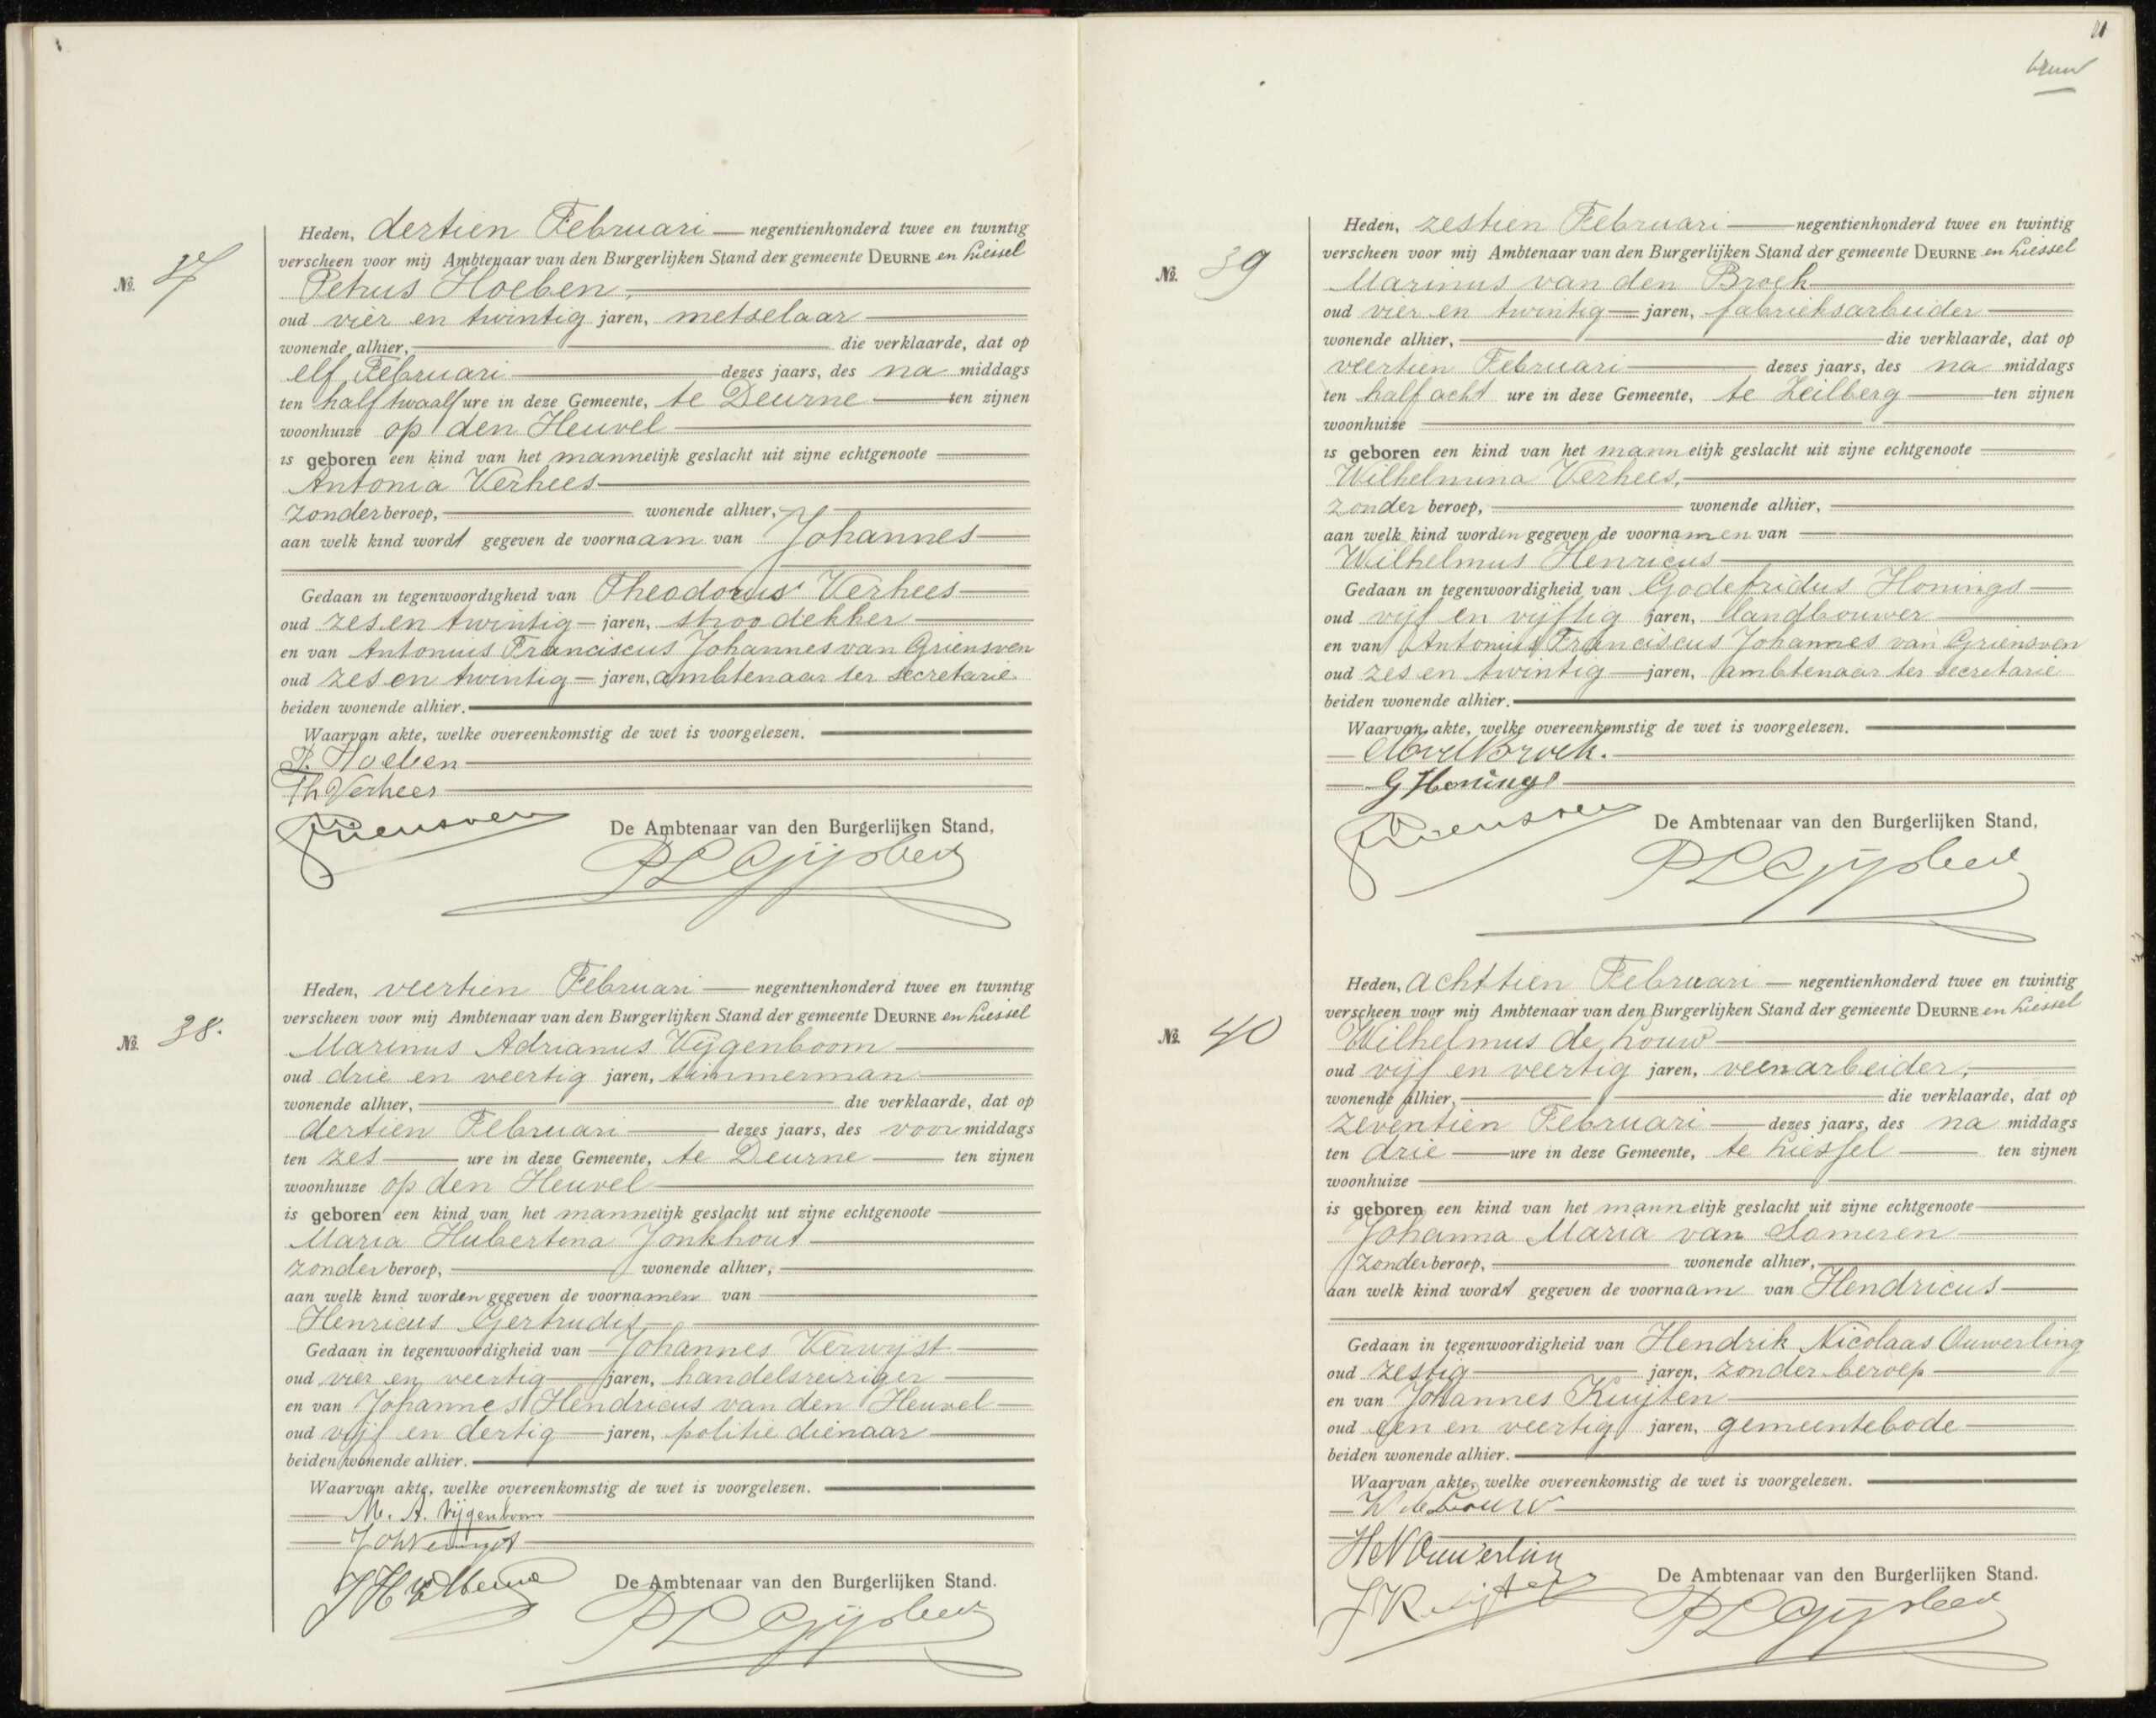 No. 37
Heden, dertien Februari — negentienhonderd twee en twintig
verscheen voor mij Ambtenaar van den Burgerlijken Stand der gemeente DEURNE en Liessel
Petrus Hoeben,
oud vier en twintig jaren, metselaar
wonende alhier, die verklaarde, dat op
elf Februari dezes jaars, des na middags
ten half twaalf ure in deze Gemeente, te Deurne ten zijnen
woonhuize op den Heuvel
is geboren een kind van het mannelijk geslacht uit zijne echtgenoote
Antonia Verhees
zonder beroep, wonende alhier,
aan welk kind wordt gegeven de voornaam van Johannes
Gedaan in tegenwoordigheid van Theodorus Verhees
oud zes en twintig jaren, stroodekker
en van Antonius Franciscus Johannes van Griensven
oud zes en twintig jaren, ambtenaar ter secretarie
beiden wonende alhier.
Waarvan akte, welke overeenkomstig de wet is voorgelezen.
P. Hoeben
Th Verhees
Griensven
De Ambtenaar van den Burgerlijken Stand,
No. 38.
Heden, veertien Februari — negentienhonderd twee en twintig
verscheen voor mij Ambtenaar van den Burgerlijken Stand der gemeente DEURNE en Liessel
Marinus Adrianus Vijgenboom
oud drie en veertig jaren, timmerman
wonende alhier, die verklaarde, dat op
dertien Februari dezes jaars, des voor middags
ten zes ure in deze Gemeente, te Deurne ten zijnen
woonhuize op den Heuvel
is geboren een kind van het mannelijk geslacht uit zijne echtgenoote
Maria Hubertina Jonkhout
zonder beroep, wonende alhier,
aan welk kind worden gegeven de voornamen van
Henricus Gertrudis,
Gedaan in tegenwoordigheid van Johannes Verwijst
oud vier en veertig jaren, handelsreiziger
en van Johannes Hendricus van den Heuvel
oud vijf en dertig jaren, politiedienaar
beiden wonende alhier.
Waarvan akte, welke overeenkomstig de wet is voorgelezen.
M. A. Vijgenboom
Joh Verwijst
De Ambtenaar van den Burgerlijken Stand.
No. 39
Heden, zestien Februari — negentienhonderd twee en twintig
verscheen voor mij Ambtenaar van den Burgerlijken Stand der gemeente DEURNE en Liessel
Marinus van den Broek
oud vier en twintig jaren, fabrieksarbeider
wonende alhier, die verklaarde, dat op
veertien Februari dezes jaars, des na middags
ten half acht ure in deze Gemeente, te Zeilberg ten zijnen
woonhuize
is geboren een kind van het mannelijk geslacht uit zijne echtgenoote
Wilhelmina Verhees,
zonder beroep, wonende alhier,
aan welk kind worden gegeven de voornamen van
Wilhelmus Henricus
Gedaan in tegenwoordigheid van Godefridus Honings
oud vijf en vijftig jaren, landbouwer
en van Antonius Franciscus Johannes van Griensven
oud zes en twintig jaren, ambtenaar ter secretarie
beiden wonende alhier.
Waarvan akte, welke overeenkomstig de wet is voorgelezen.
G Honings
Griensven
De Ambtenaar van den Burgerlijken Stand,
No. 40
Heden, achttien Februari — negentienhonderd twee en twintig
verscheen voor mij Ambtenaar van den Burgerlijken Stand der gemeente DEURNE en Liessel
Wilhelmus de Louw
oud vijf en veertig jaren, veenarbeider,
wonende alhier, die verklaarde, dat op
zeventien Februari dezes jaars, des na middags
ten drie ure in deze Gemeente, te Liessel ten zijnen
woonhuize
is geboren een kind van het mannelijk geslacht uit zijne echtgenoote
Johanna Maria van Someren
zonder beroep, wonende alhier,
aan welk kind wordt gegeven de voornaam van Hendricus
Gedaan in tegenwoordigheid van Hendrik Nicolaas Ouwerling
oud zestig jaren, zonder beroep
en van Johannes Kuijten
oud een en veertig jaren, gemeentebode
beiden wonende alhier.
Waarvan akte, welke overeenkomstig de wet is voorgelezen.
W de Louw
H N Ouwerling
De Ambtenaar van den Burgerlijken Stand.